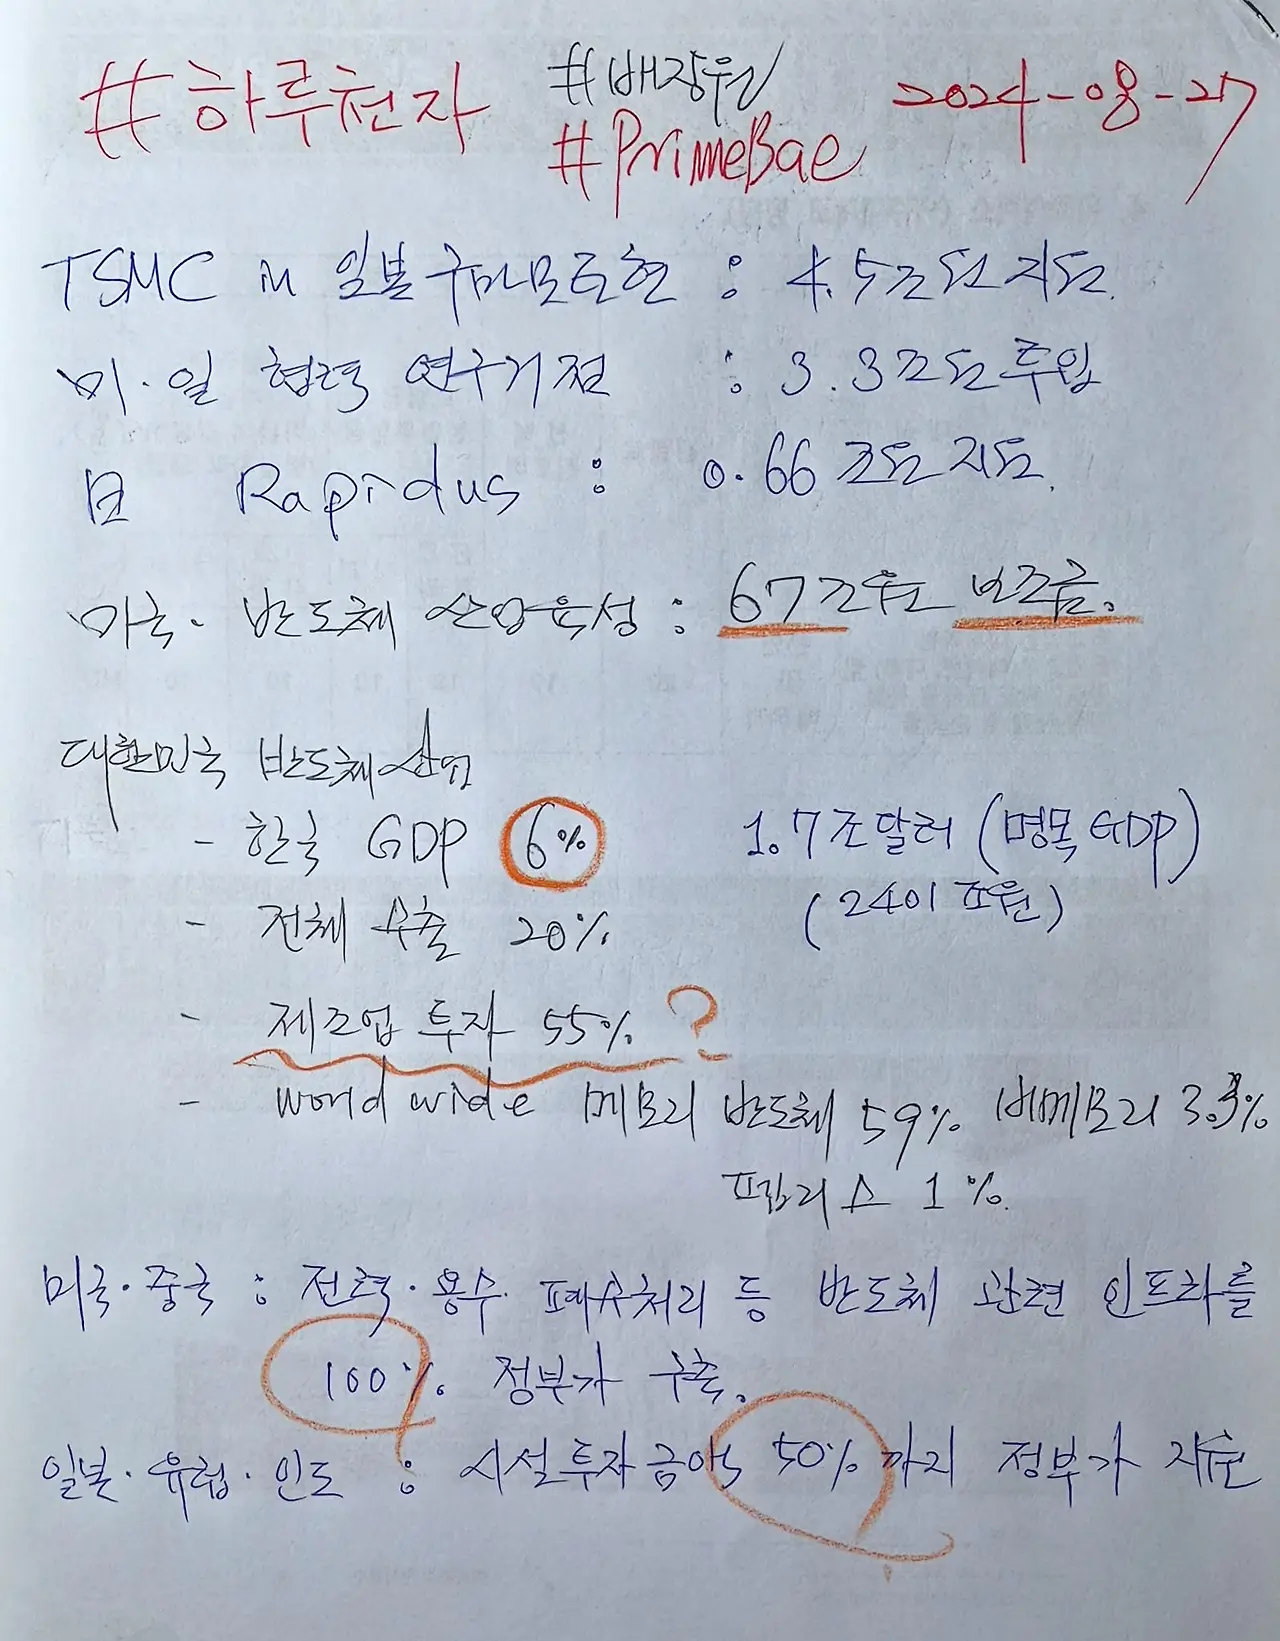 #하루천자 #배장원 2024-08-27
#PrimeBae
TSMC in 일본구마모토현 : 4.5조원 지원.
미·일 협력 연구거점 : 3.3조원 투입
日 Rapidus : 0.66조원 지원.
미국· 반도체 산업육성 : 67조원 보조금.
대한민국 반도체산업
- 한국 GDP 6% 1.7조달러 (명목 GDP)
- 전체 수출 20% (2401 조원)
- 제조업 투자 55% ?
- world wide 메모리 반도체 59% 비메모리 3.3%
팹리스 1%.
미국·중국 : 전력·용수·폐수처리 등 반도체 관련 인프라를
100% 정부가 구축.
일본·유럽·인도 : 시설투자금액 50%까지 정부가 지원